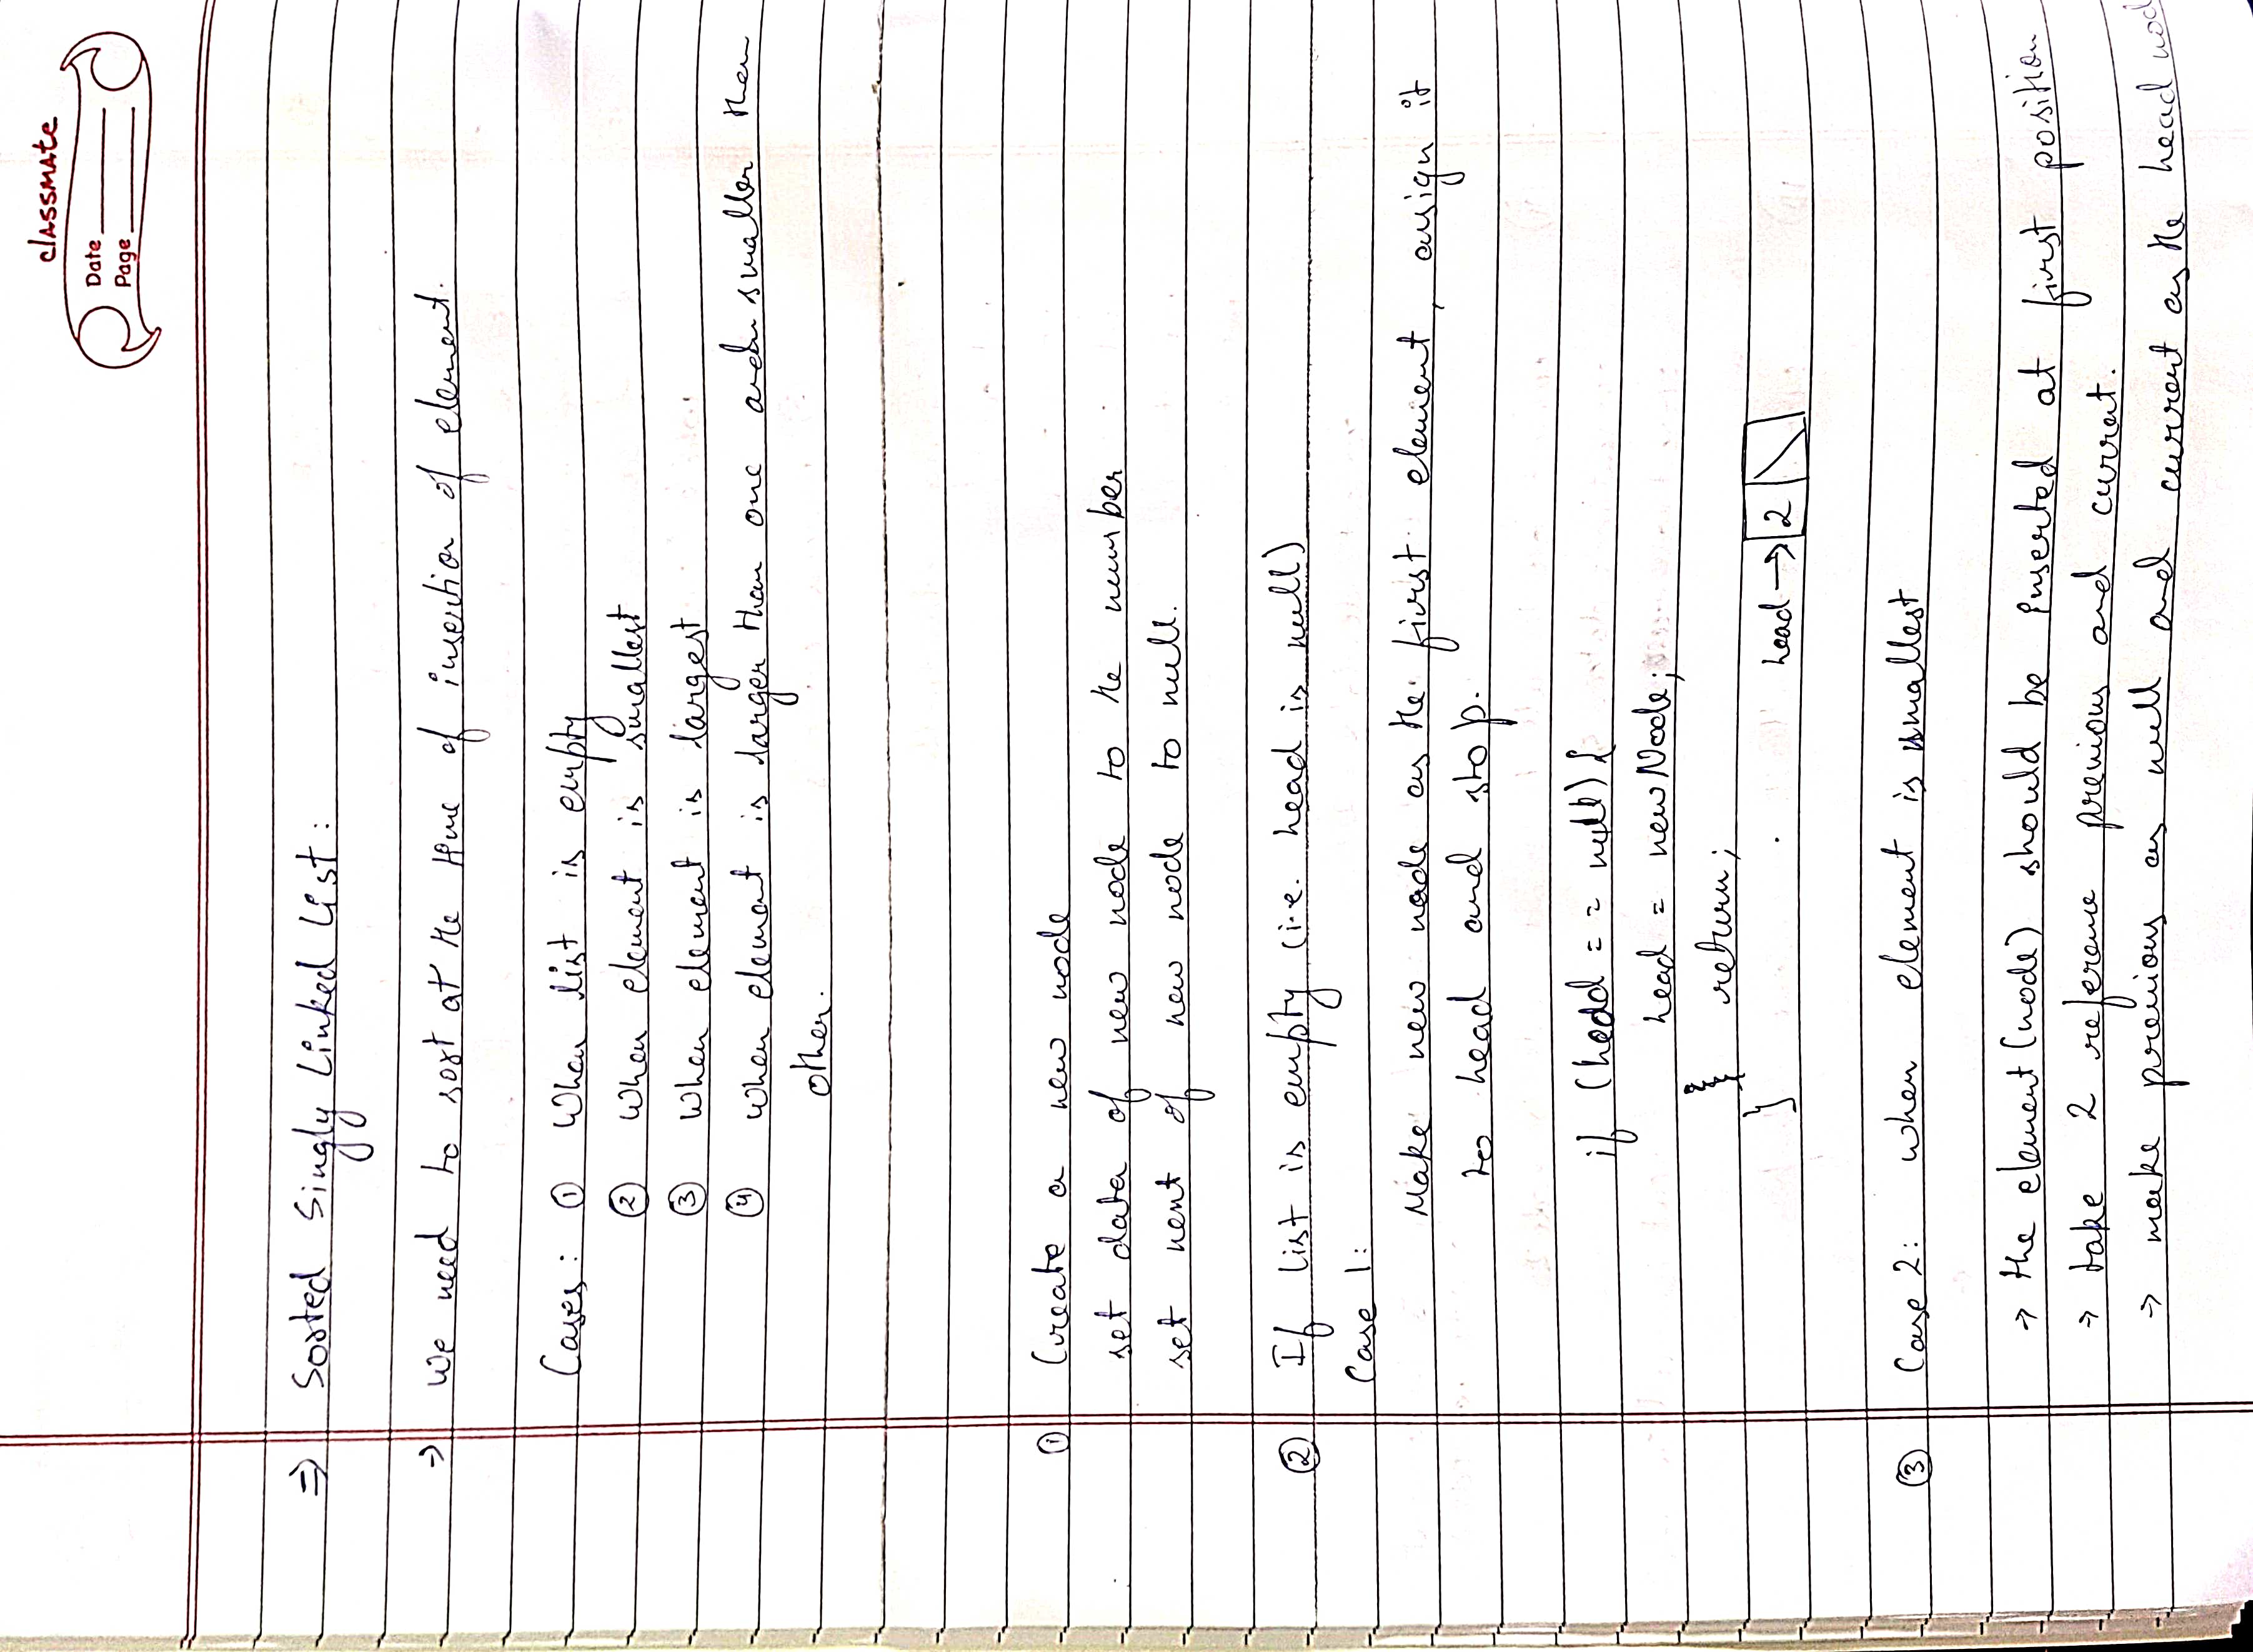 classmate
Date
Page
⇒ Sorted Singly Linked List:
→ We need to sort at the time of insertion of element.
Cases: ① When list is empty
② when element is smallest
③ when element is largest
④ when element is larger than one and smaller than
other.
① Create a new node
set data of new node to the number
set next of new node to null.
② If list is empty (i.e. head is null)
Case 1:
Make new node as the first element, assign it
to head and stop.
if (head == null) {
head = newNode;
return;
}
head → 2
③ Case 2: when element is smallest
→ the element (node) should be inserted at first position
→ take 2 reference previous and current.
→ make previous as null and current as the head node